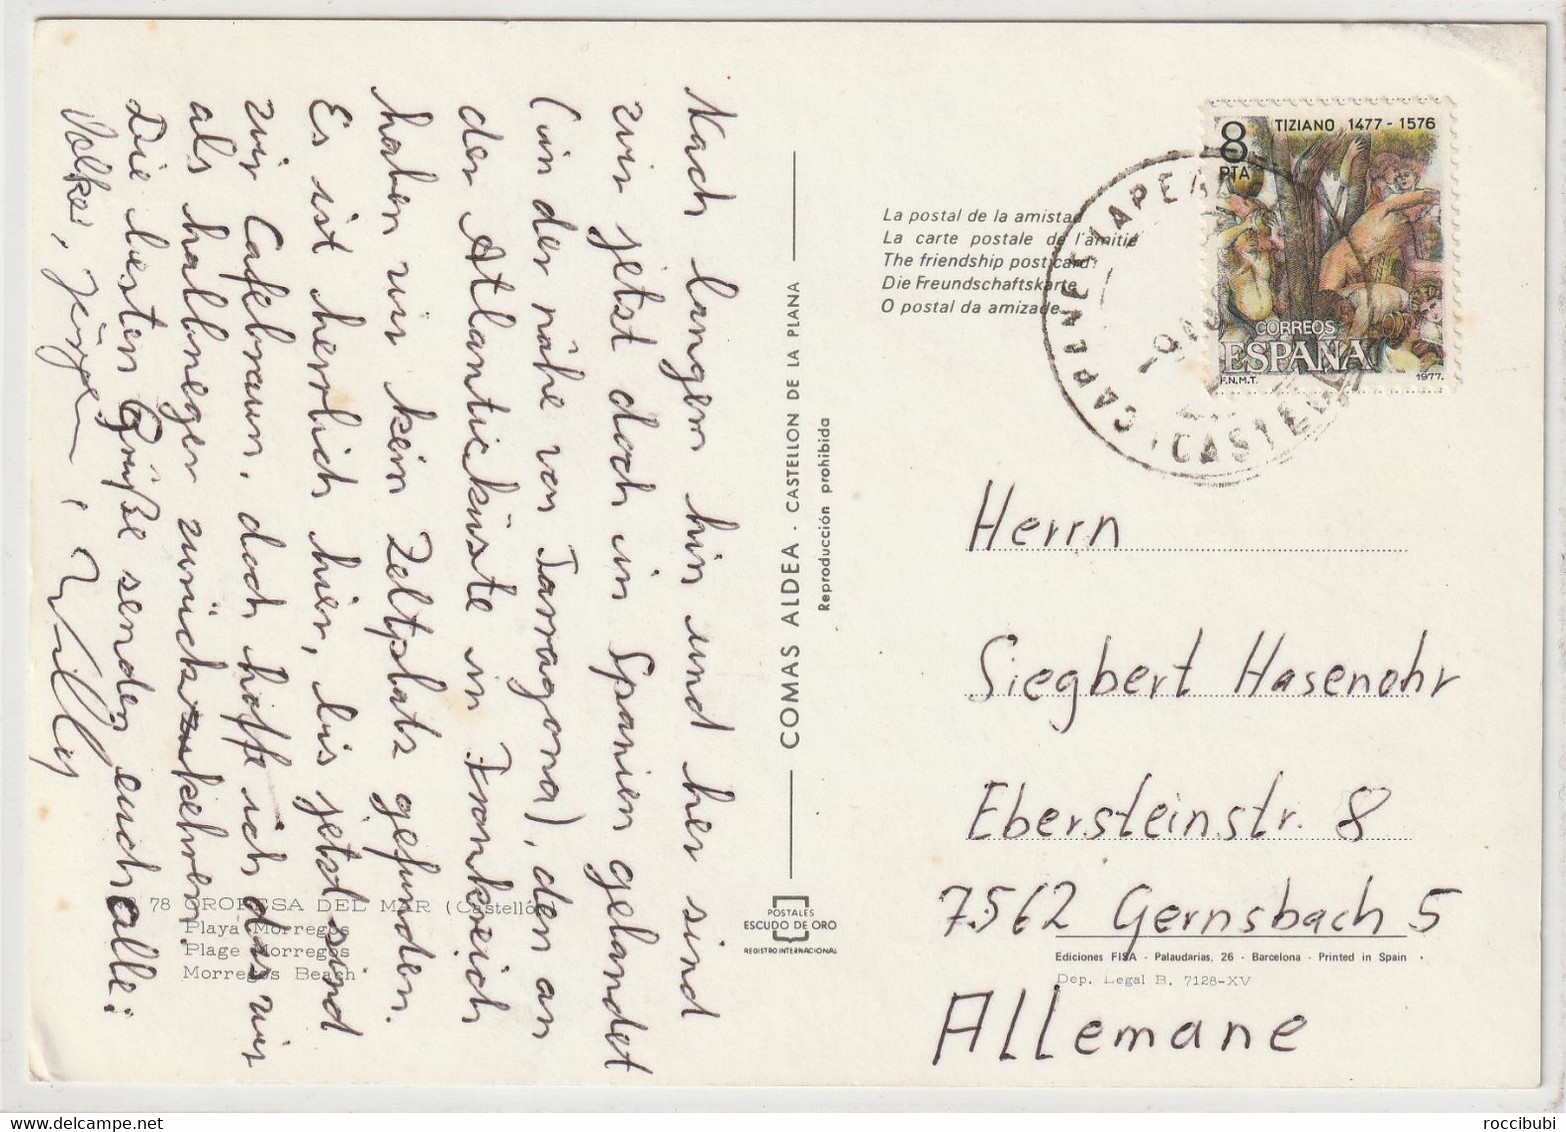 Nach langem hin und her sind
wir jetst doch in Spanien gelandet
(in der nähe von Tarragona), den an
der Atlantickuste in Frankreich
haben wir kein Zeltplatz gefunden.
Es ist herrlich hier, bis jetst sind
wir Cafebraun, doch hoffe ich das wir
als halbneger zurückzukehren.
Die besten Grüße senden euch alle:
Volker, Jürgen, Willy
78 OROPESA DEL MAR (Castellón)
Playa Morregos
Plage Morregos
Morregos Beach
COMAS ALDEA · CASTELLON DE LA PLANA
Reproducción prohibida
POSTALES
ESCUDO DE ORO
REGISTRO INTERNACIONAL
La postal de la amistad
La carte postale de l'amitié
The friendship postcard
Die Freundschaftskarte
O postal da amizade
8
PTA
TIZIANO 1477-1576
CORREOS
ESPAÑA
F.N.M.T.
1977.
Herrn
Siegbert Hasenohr
Ebersteinstr. 8
7562 Gernsbach 5
Allemane
Ediciones FISA - Palaudarias, 26 - Barcelona - Printed in Spain
Dep. Legal B. 7128-XV
roccibubi